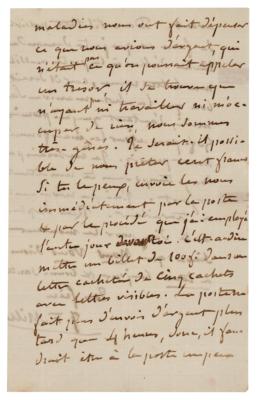 maladies nous ont fait dépenser
ce que nous avions d'argent, qui
n'était pas ce qu'on pourrait appeler
un trésor il se trouve que
n'ayant pu travailler ni m'oc-
cuper de rien, nous sommes
très gênés. Te serait-il possi-
ble de nous prêter cent francs
Si tu le peux, envoie les nous
immédiatement par la poste
& par le procédé que j'ai employé
l'autre jour devant toi. C'est-à-dire
mettre un billet de 100 f. dans une
lettre cachetée de cinq cachets
avec lettres visibles. La poste ne
fait plus d'envois d'argent plus
tard que 4 heures, donc, il fau-
drait être à la poste un peu